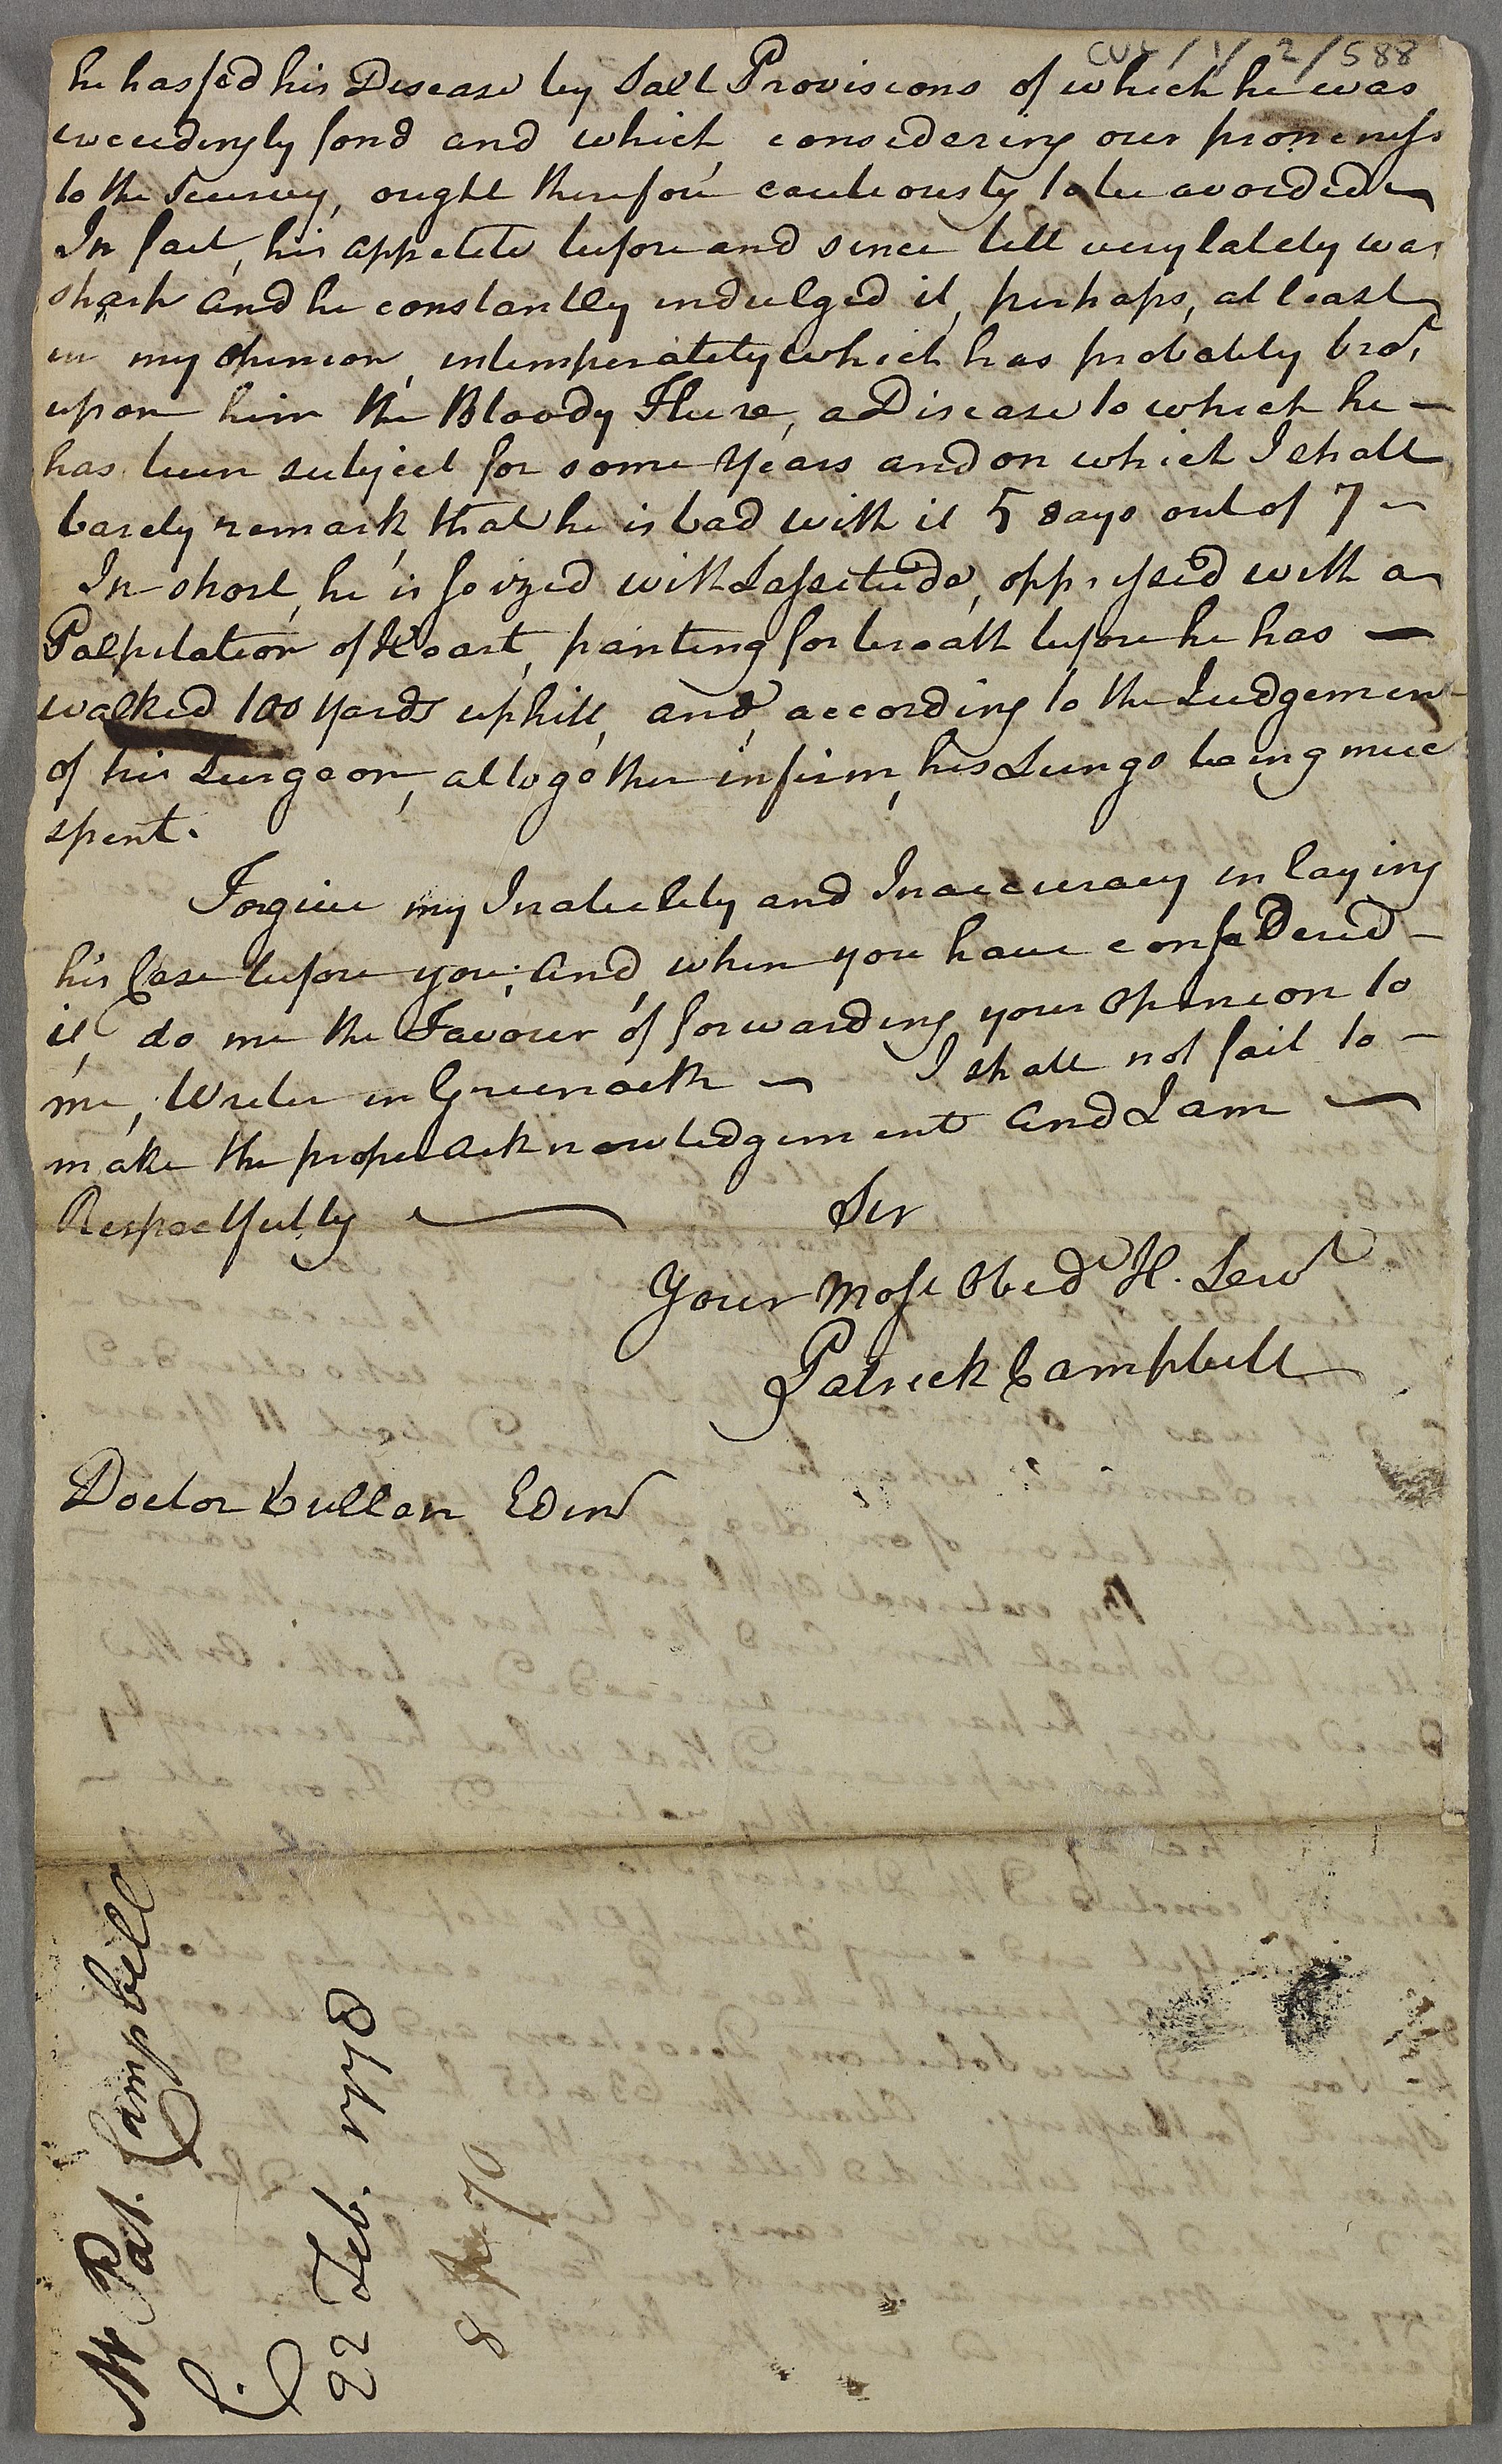 CUL/1/2/588
he has fed his Disease by Salt Provisions of which he was
exceedingly fond and which, considering our proneness
to the Scurvy, ought therefore cauteously to be avoided
In fact, his appetite before and since till very lately was
sharp and he constantly indulged it, perhaps, at least
in my Opinion, intemperately which has probably bro.t
upon him the Bloody Fluxe, a Disease to which he –
has been subject for some Years and on which I shall
barely remark, that he is bad with it 5 days out of 7
In short, he is seized with Lassitude, oppressed with a
Palpitation of Heart, panting for breath before he has –
walked 100 yards uphill, and, according to the Judgemen
of his Surgeon, altogether infirm, his Lungs being muc
spent.
Forgive my Inability and Inaccuracy in laying
his Case before you; And, when you have considered –
it, do me the Favour of forwarding your Opinion to
me, Writer in Greenock – I shall not fail to –
make the proper Acknowledgement and I am
Respectfully
Sir
Your Most Obed.t H. Serv.t
Patrick Campbell
Doctor Cullen Edin.r
Mr Pat. Campbell
C.
22 Feb. 1770